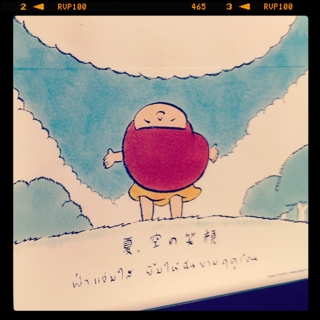 2 RVP100 465 3 RVP100
夏、空の笑顔
ฟ้าแจ่มใส ยิ้มให้ฉันยามฤดูร้อน